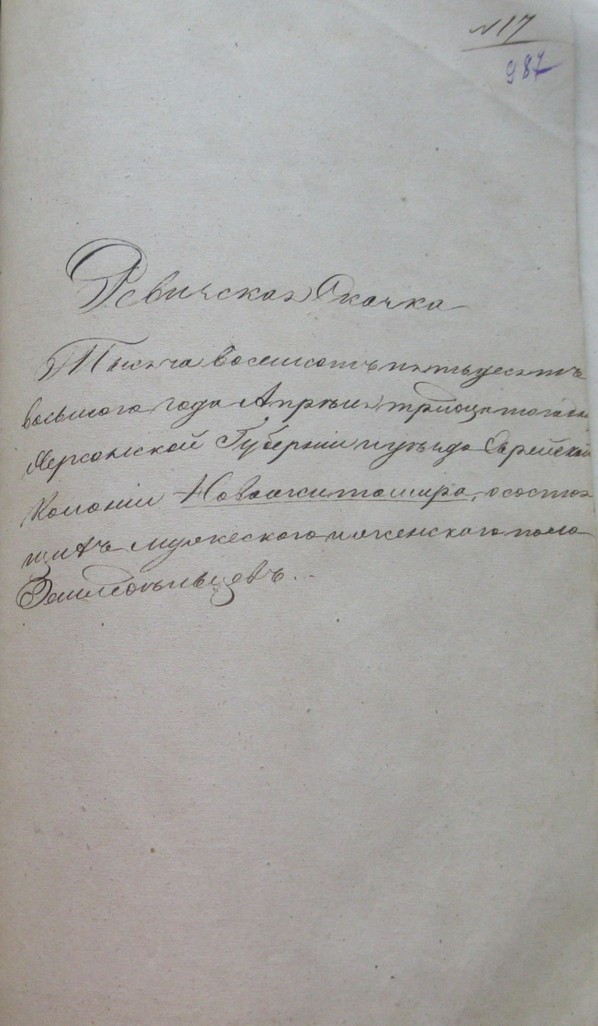 № 17
987
Ревижская Скачка
Тысяча восемьсотъ пятьдесятъ
восьмого года Апрѣля тридцатого дня
Херсонской Губерніи и уѣзда Еврейской
Колоніи Новожитомира, о состоя
щихъ мужеского и женского пола
Земледѣльцовъ. –